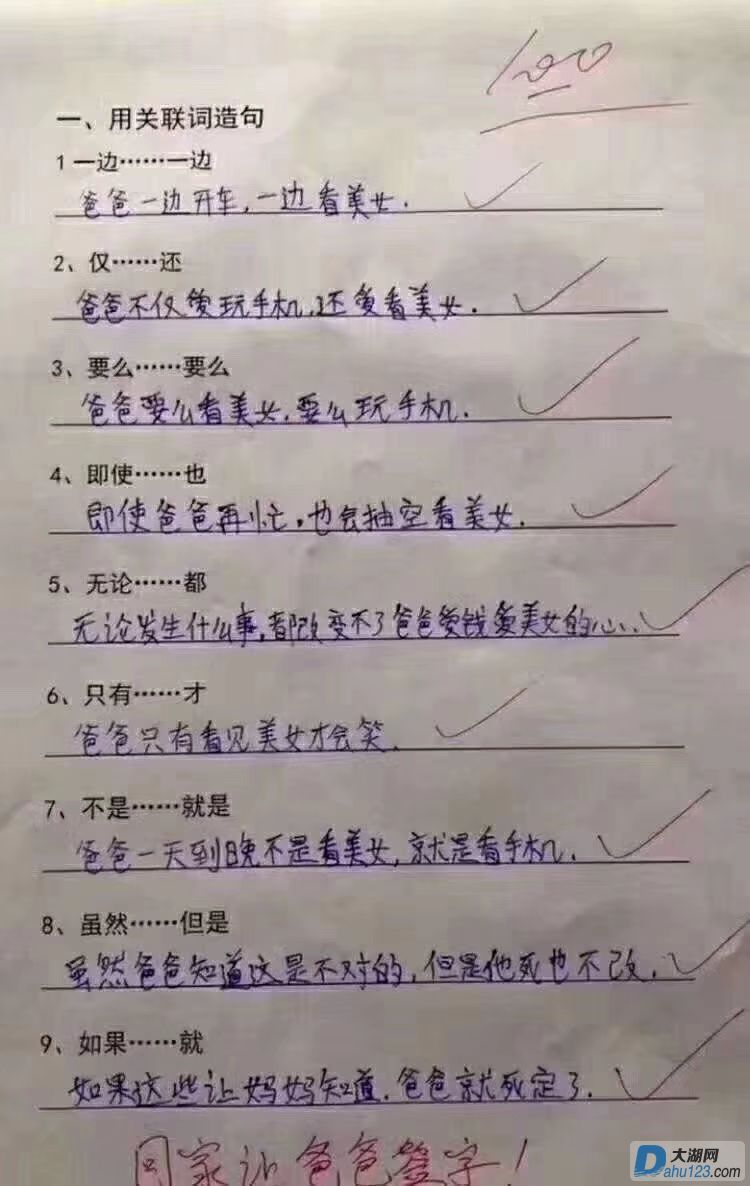 100
一、用关联词造句
1 一边……一边
爸爸一边开车,一边看美女.
2、仅……还
爸爸不仅爱玩手机,还爱看美女.
3、要么……要么
爸爸要么看美女,要么玩手机.
4、即使……也
即使爸爸再忙,也会抽空看美女.
5、无论……都
无论发生什么事,都改变不了爸爸爱钱爱美女的心.
6、只有……才
爸爸只有看见美女才会笑.
7、不是……就是
爸爸一天到晚不是看美女,就是看手机.
8、虽然……但是
虽然爸爸知道这是不对的,但是他死也不改.
9、如果……就
如果这些让妈妈知道.爸爸就死定了.
回家让爸爸签字!
大湖网
Dahu123.com